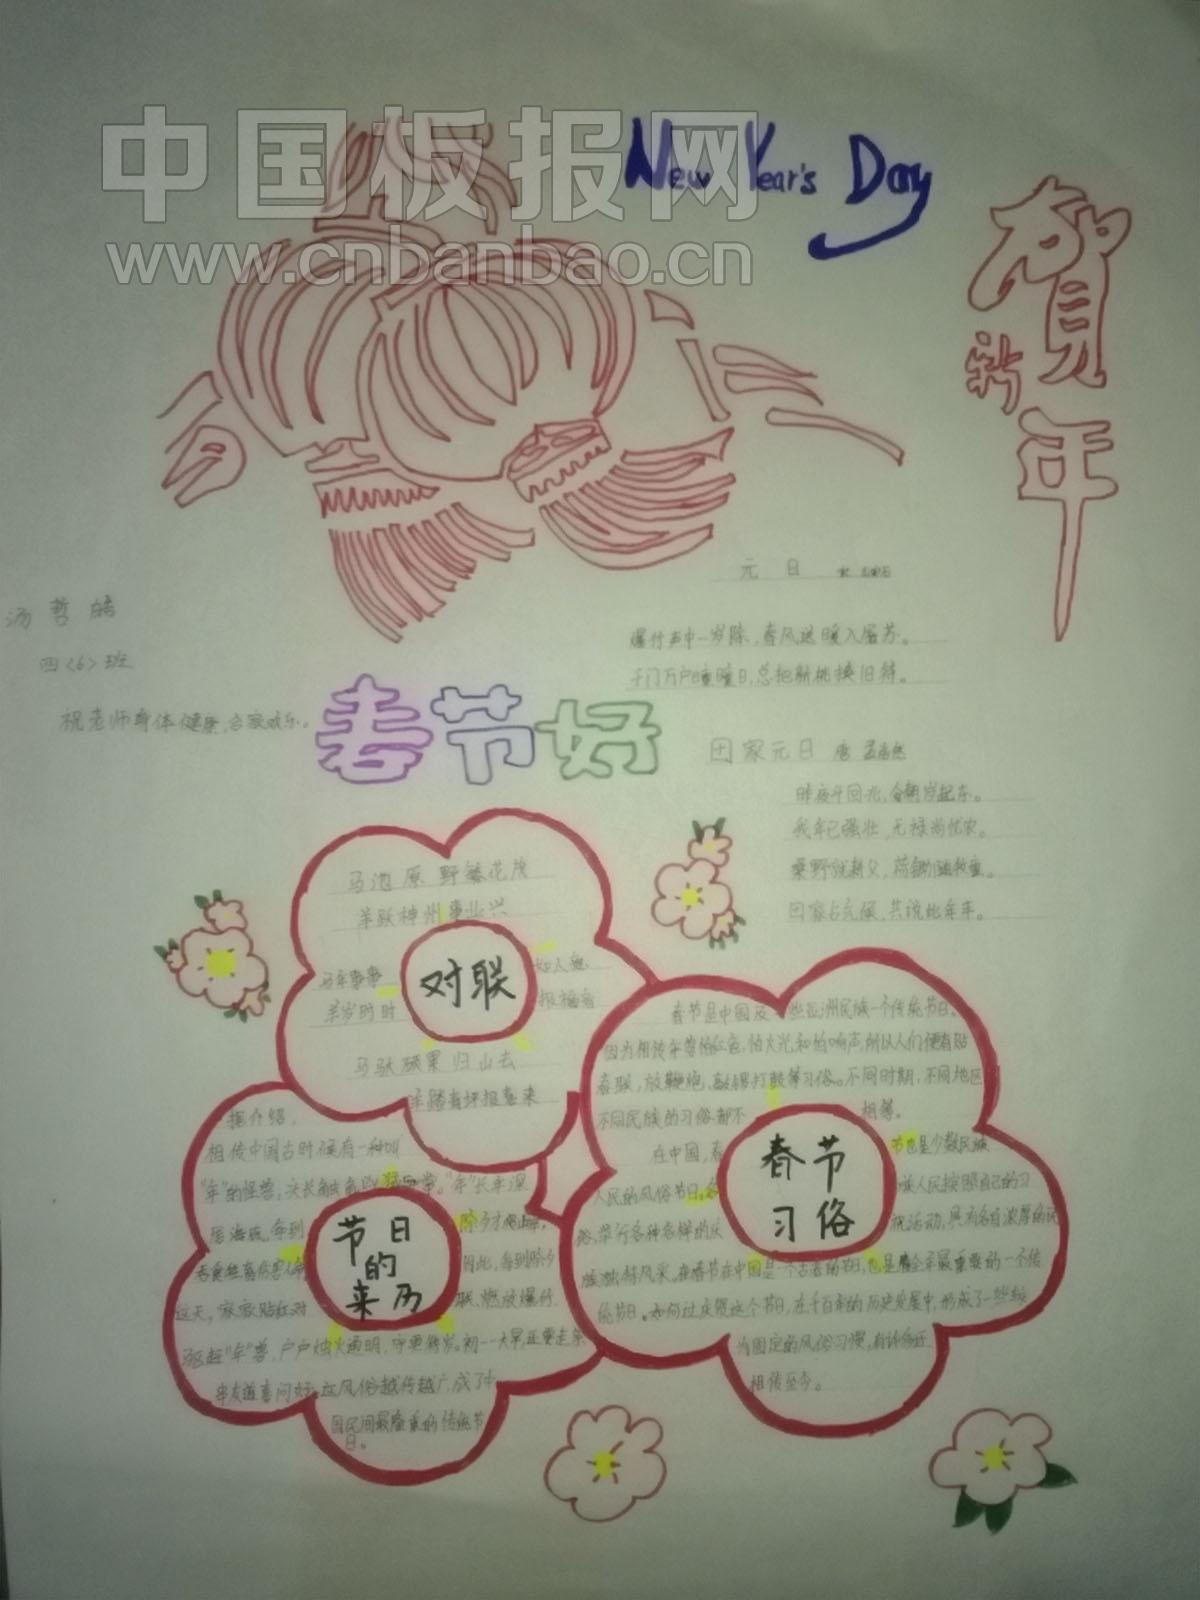 中国板报网
www.cnbanbao.cn
New Year's Day
贺
新
年
元日
爆竹声中一岁除,春风送暖入屠苏。
千门万户曈曈日,总把新桃换旧符。
汤哲皓
四<6>班
祝老师身体健康,合家欢乐。
春节好
田家元日 唐 孟浩然
昨夜斗回北,今朝岁起东。
我年已强壮,无禄尚忧农。
桑野就耕父,荷锄随牧童。
田家占气候,共说此年丰。
马驰原野繁花茂
羊跃神州事业兴
对联
马年事事 如人意
羊岁时时 报福音
马驮硕果归山去
羊踏青坪报春来
春节是中国及一些亚洲民族一个传统节日。
因为相传年兽怕红色,怕火光和怕响声,所以人们便有贴
春联,放鞭炮,敲锣打鼓等习俗。不同时期,不同地区
不同民族的习俗都不 相等。
在中国,春 节也是少数民族
人民的风俗节日。各 族人民按照自己的习
俗,举行各种各样的庆 祝活动,具有各自浓厚的民
春节
习俗
族独特风采。在春节在中国是一个古老的节日,也是全年最重要的一个传
统节日。如何过庆贺这个节日,在千百年的历史发展中,形成了一些较
为固定的风俗习惯,有许多还
相传至今。
据介绍,
相传中国古时候有一种叫
"年"的怪兽,头长触角,凶猛异常。"年"长年深
居海底,每到 除夕才爬上岸,
吞食牲畜伤害人命 因此,每到除夕
这天, 家家贴红对 联、燃放爆竹
节日
的
来历
驱赶"年"兽,户户烛火通明,守更待岁。初一一大早,还要走亲
串友道喜问好。这风俗越传越广,成了中
国民间最隆重的传统节
日。